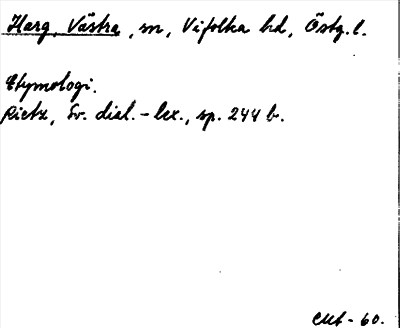 Harg, Västra, sn, Vifolka hd, Östg. l.
Etymologi.
Rietz, Sv. dial.-lex., sp. 244 b.
- 60.